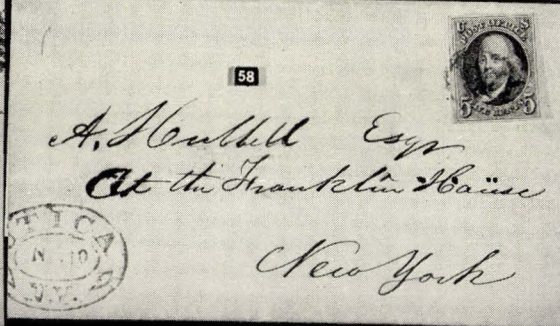 POST OFFICE
5 FIVE CENTS 5
58
A. Hubbell Esqr
At the Franklin House
New York
UTICA
N.Y.